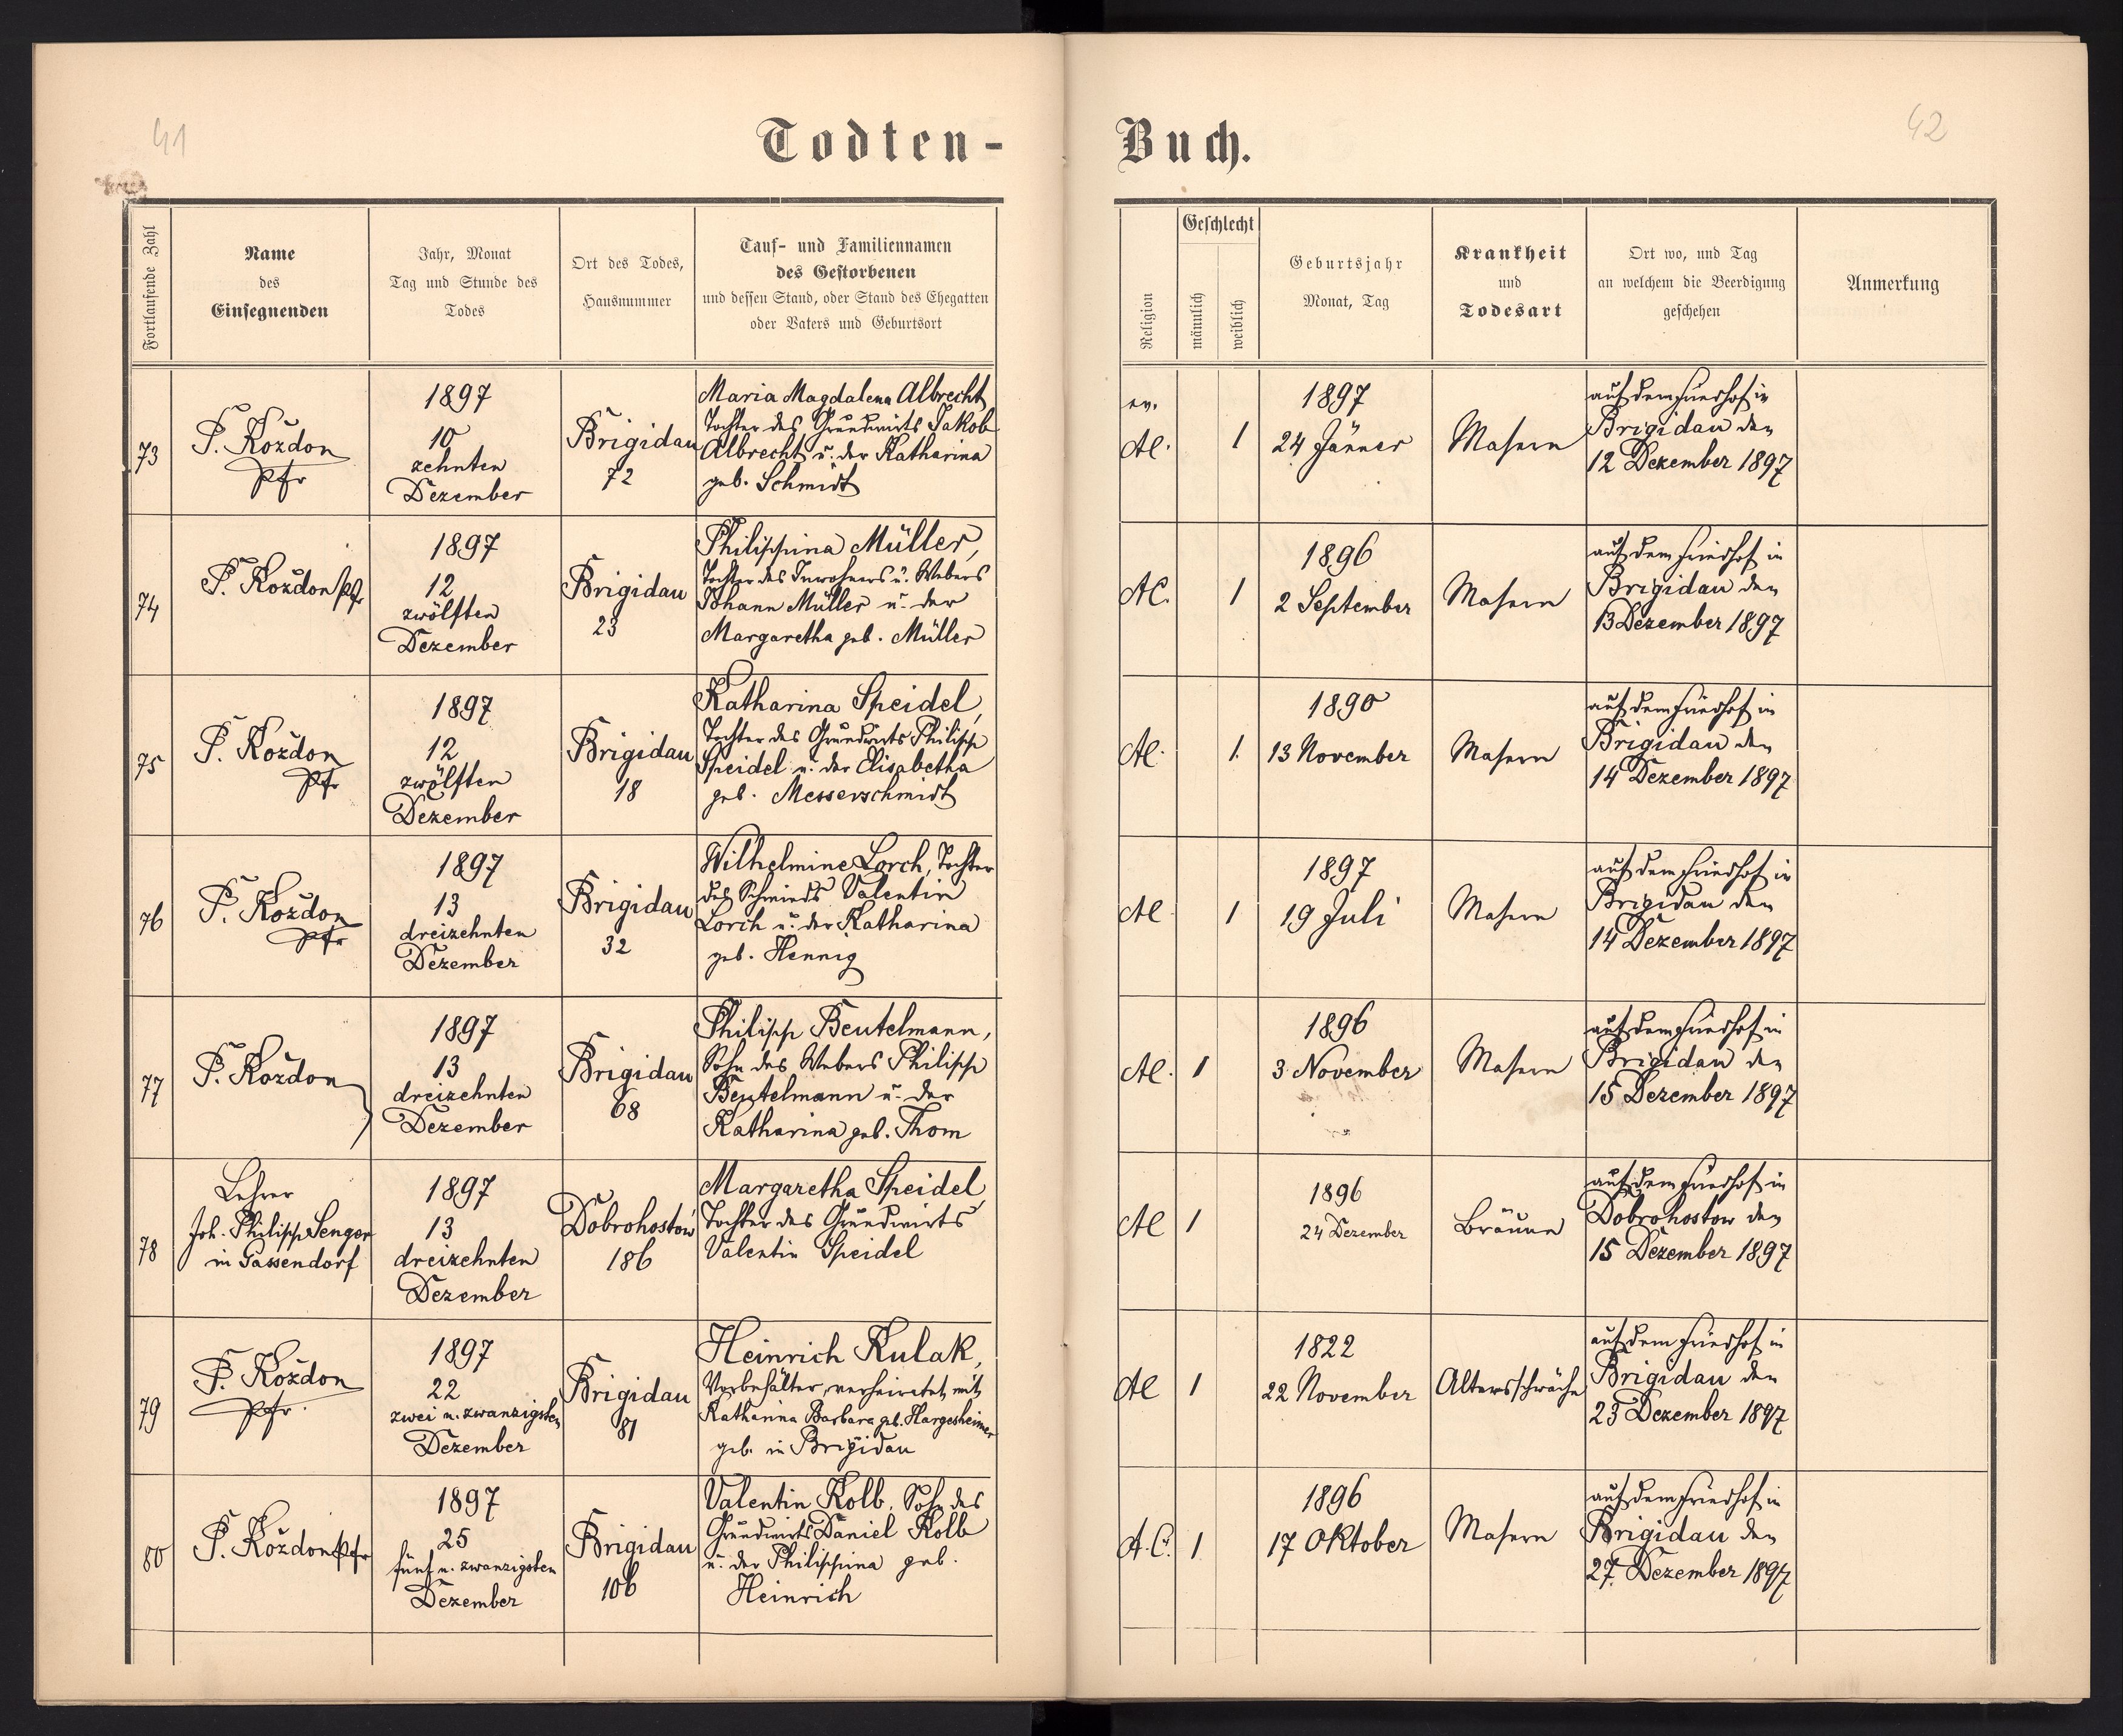 41
42
Todten-
Buch.
Fortlaufende Zahl
Name
des
Einsegnenden
Jahr, Monat
Tag und Stunde des
Todes
Ort des Todes,
Hausnummer
Tauf- und Familiennamen
des Gestorbenen
und dessen Stand, oder Stand des Ehegatten
oder Vaters und Geburtsort
Religion
Geschlecht
männlich
weiblich
Geburtsjahr
Monat, Tag
Krankheit
und
Todesart
Ort wo, und Tag
an welchem die Beerdigung
geschehen
Anmerkung
73
P. Kożdon
Pfr
1897
10
zehnten
Dezember
Brigidau
72
Maria Magdalena Albrecht
Tochter des Grundwirts Jakob
Albrecht u. der Katharina
geb. Schmidt
ev.
AC.
1
1897
24 Jänner
Masern
auf dem Friedhof in
Brigidau den
12 Dezember 1897
74
P. Kożdon Pfr
1897
12
zwölften
Dezember
Brigidau
23
Philippina Müller,
Tochter des Inwohners u. Webers
Johann Müller u. der
Margaretha geb. Müller
AC.
1
1896
2 September
Masern
auf dem Friedhof in
Brigidau den
13 Dezember 1897
75
P. Kożdon
Pfr
1897
12
zwölften
Dezember
Brigidau
18
Katharina Speidel,
Tochter des Grundwirts Philipp
Speidel u. der Elisabetha
geb. Messerschmidt
AC.
1.
1890
13 November
Masern
auf dem Friedhof in
Brigidau den
14 Dezember 1897
76
P. Kożdon
Pfr
1897
13
dreizehnten
Dezember
Brigidau
32
Wilhelmine Lorch, Tochter
des Schmieds Valentin
Lorch u. der Katharina
geb. Hennig
AC
1
1897
19 Juli
Masern
auf dem Friedhof in
Brigidau den
14 Dezember 1897
77
P. Kożdon
1897
13
dreizehnten
Dezember
Brigidau
68
Philipp Beutelmann,
Sohn des Webers Philipp
Beutelmann u. der
Katharina geb. Thom
AC.
1
1896
3 November
Masern
auf dem Friedhof in
Brigidau den
15 Dezember 1897
78
Lehrer
Joh. Philipp Senger
in Gassendorf
1897
13
dreizehnten
Dezember
Dobrohostów
186
Margaretha Speidel,
Tochter des Grundwirts
Valentin Speidel
AC
1
1896
24 Dezember
Bräune
auf dem Friedhof in
Dobrohostow den
15 Dezember 1897
79
P. Kożdon
Pfr.
1897
22
zwei u. zwanzigsten
Dezember
Brigidau
81
Heinrich Kulak,
Vorbehälter, verheiratet mit
Katharina Barbara geb. Hargesheimer
geb. in Brigidau
AC
1
1822
22 November
Altersschwäche
auf dem Friedhof in
Brigidau den
23 Dezember 1897
80
P. Kożdon Pfr
1897
25
fünf u. zwanzigsten
Dezember
Brigidau
106
Valentin Kolb, Sohn des
Grundwirts Daniel Kolb
u. der Philippina geb.
Heinrich
A.C.
1
1896
17 Oktober
Masern
auf dem Friedhof in
Brigidau den
27. Dezember 1897